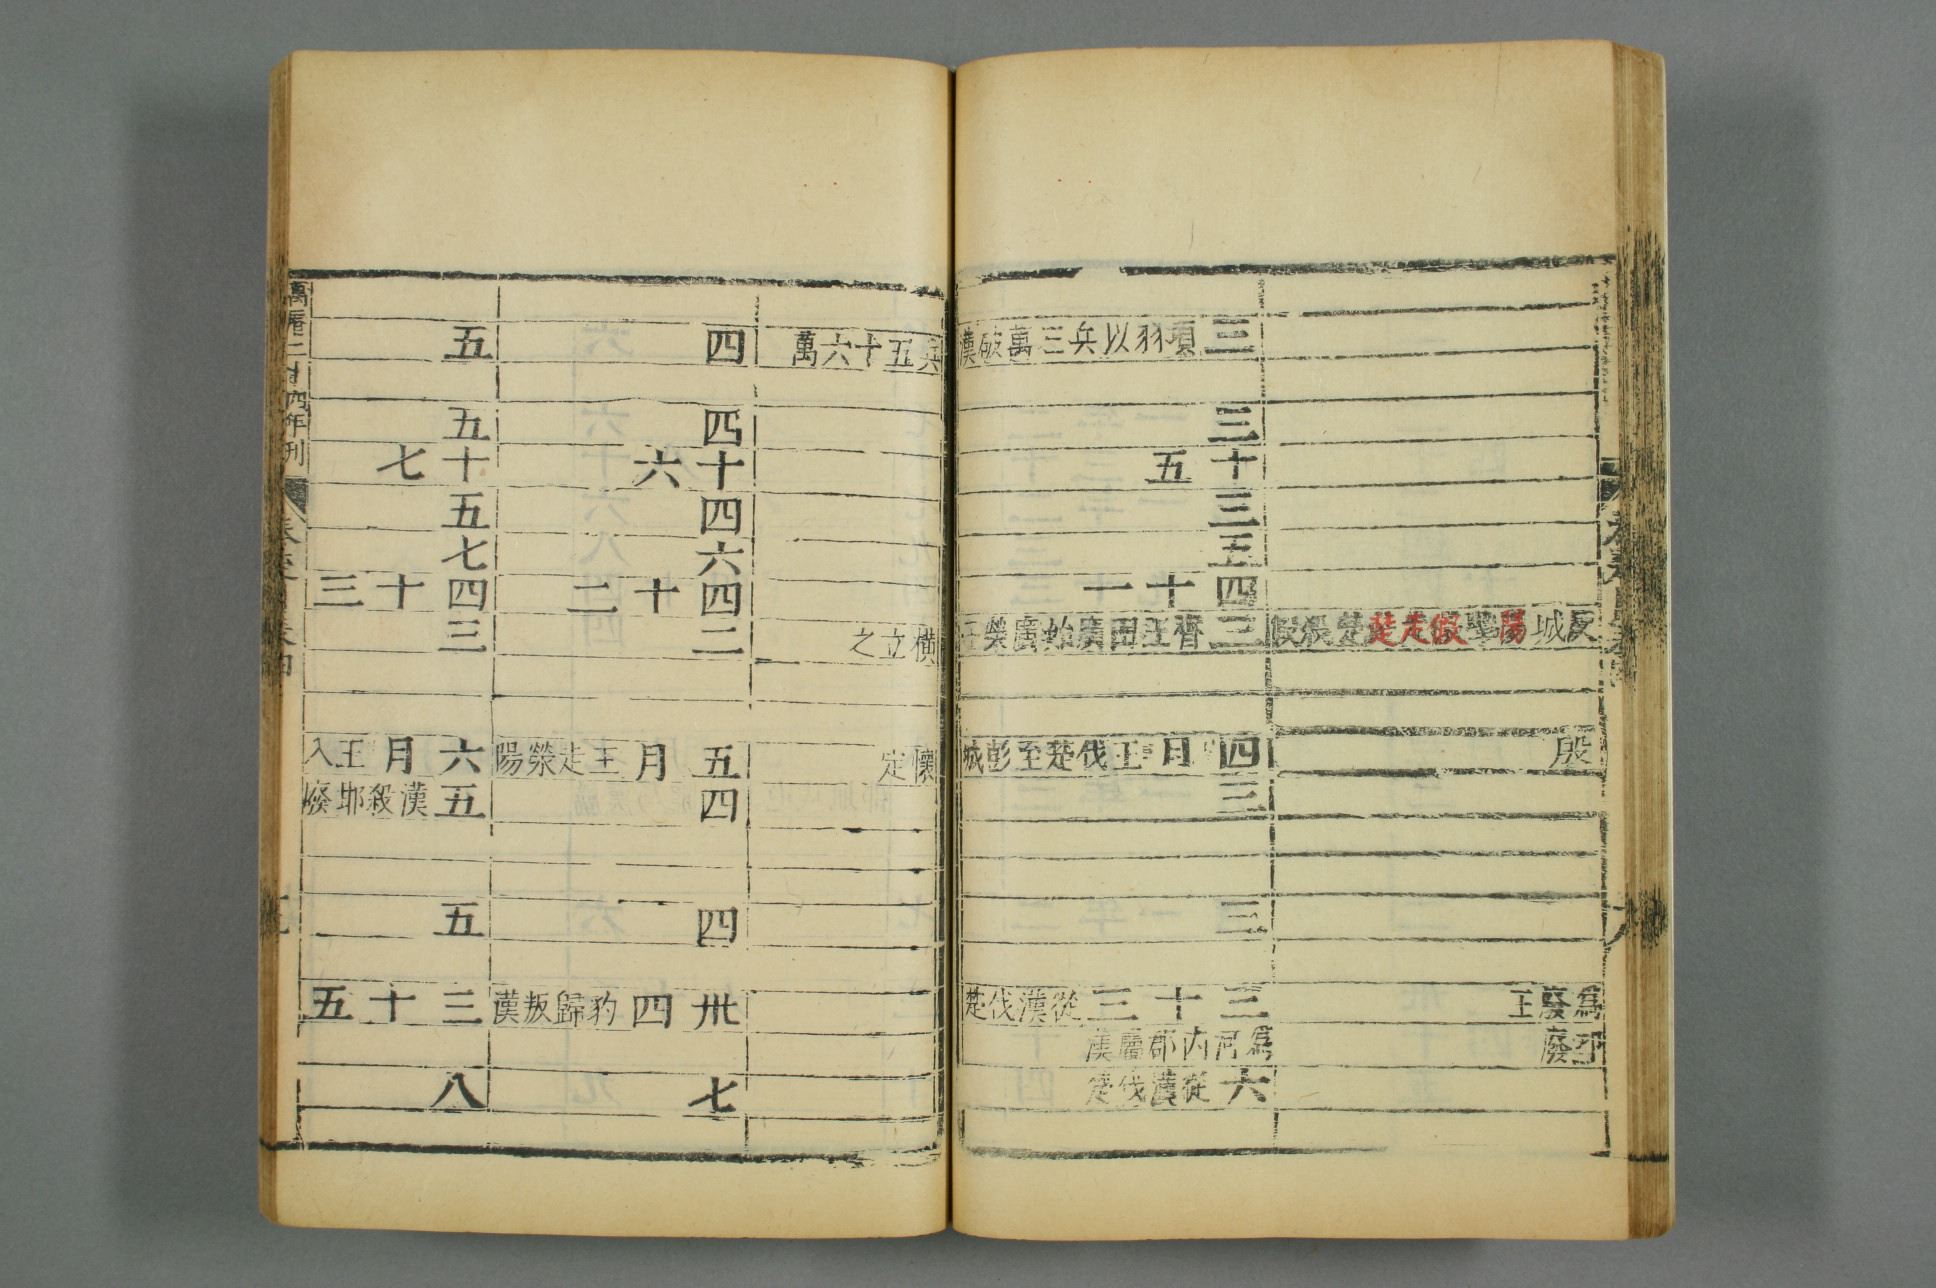 反城陽擊假走楚楚殺假
殷
為廢王
卬廢
三項羽以兵三萬破漢
三
十五
三
五
四十一
三齊王田廣始廣榮子
四月王伐楚至彭城
三
三
三十三從漢伐楚
為河內郡屬漢
六從漢伐楚
兵五十六萬
橫立之
壞走
四
四
十六
四
六
四十二
二
五月王走滎陽
四
四
卅四豹歸叛漢
七
五
五
十七
五
七
四十三
三
六月王入
五漢殺邯廢
五
三十五
八
萬曆二十四年刊